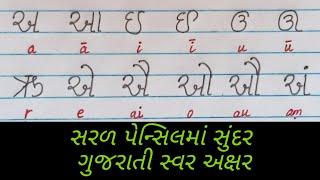 અ આ ઇ ઈ ઉ ઊ
a ā i ī u ū
ઋ એ ઐ ઓ ઔ અં
r e ai o au am
સરળ પેન્સિલમાં સુંદર
ગુજરાતી સ્વર અક્ષર